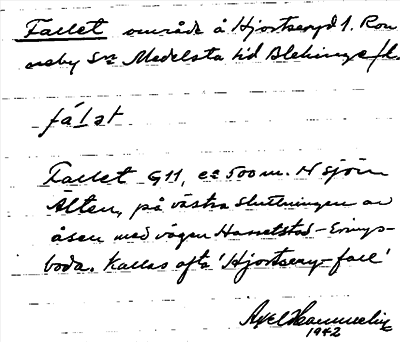 Fallet område å Hjortseryd 1. Ron
neby sn Medelsta hd Blekinge l.
fál̄et
Fallet G11, ca 500 m. N sjön
Älten, på västra sluttningen av
åsen med vägen Hasselstad–Erings-
boda. Kallas ofta 'Hjortsery-fall'
1942